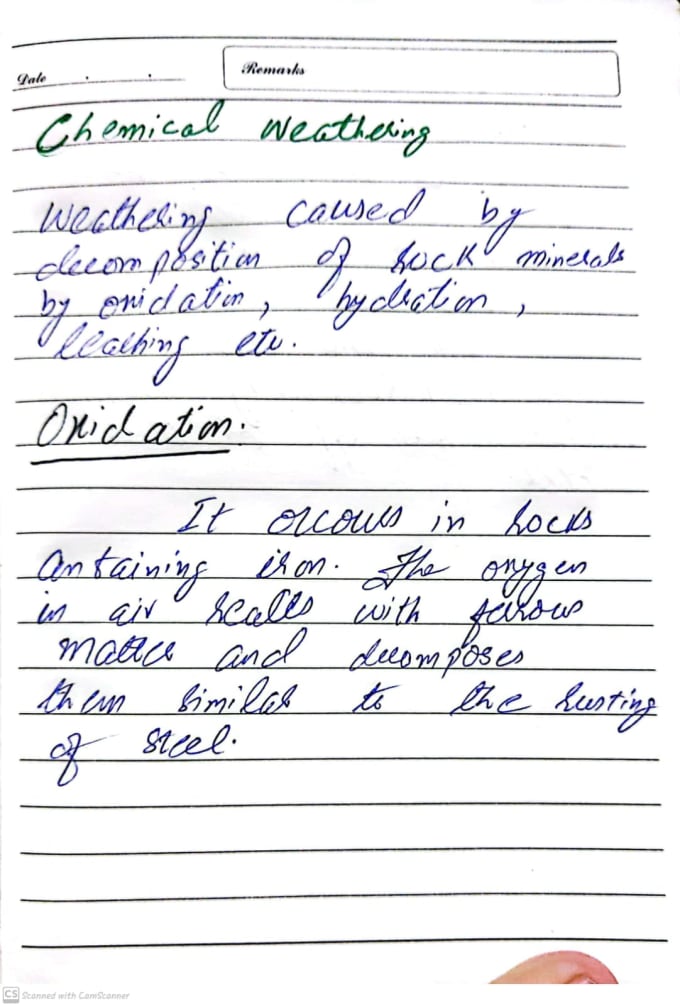 Date
Remarks
Chemical Weathering
Weathering caused by
decomposition of rock minerals
by oxidation, hydration,
leaching etc.
Oxidation.
It occurs in rocks
containing iron. The oxygen
in air reacts with ferrous
matter and decomposes
them similar to the rusting
of steel.
CS Scanned with CamScanner